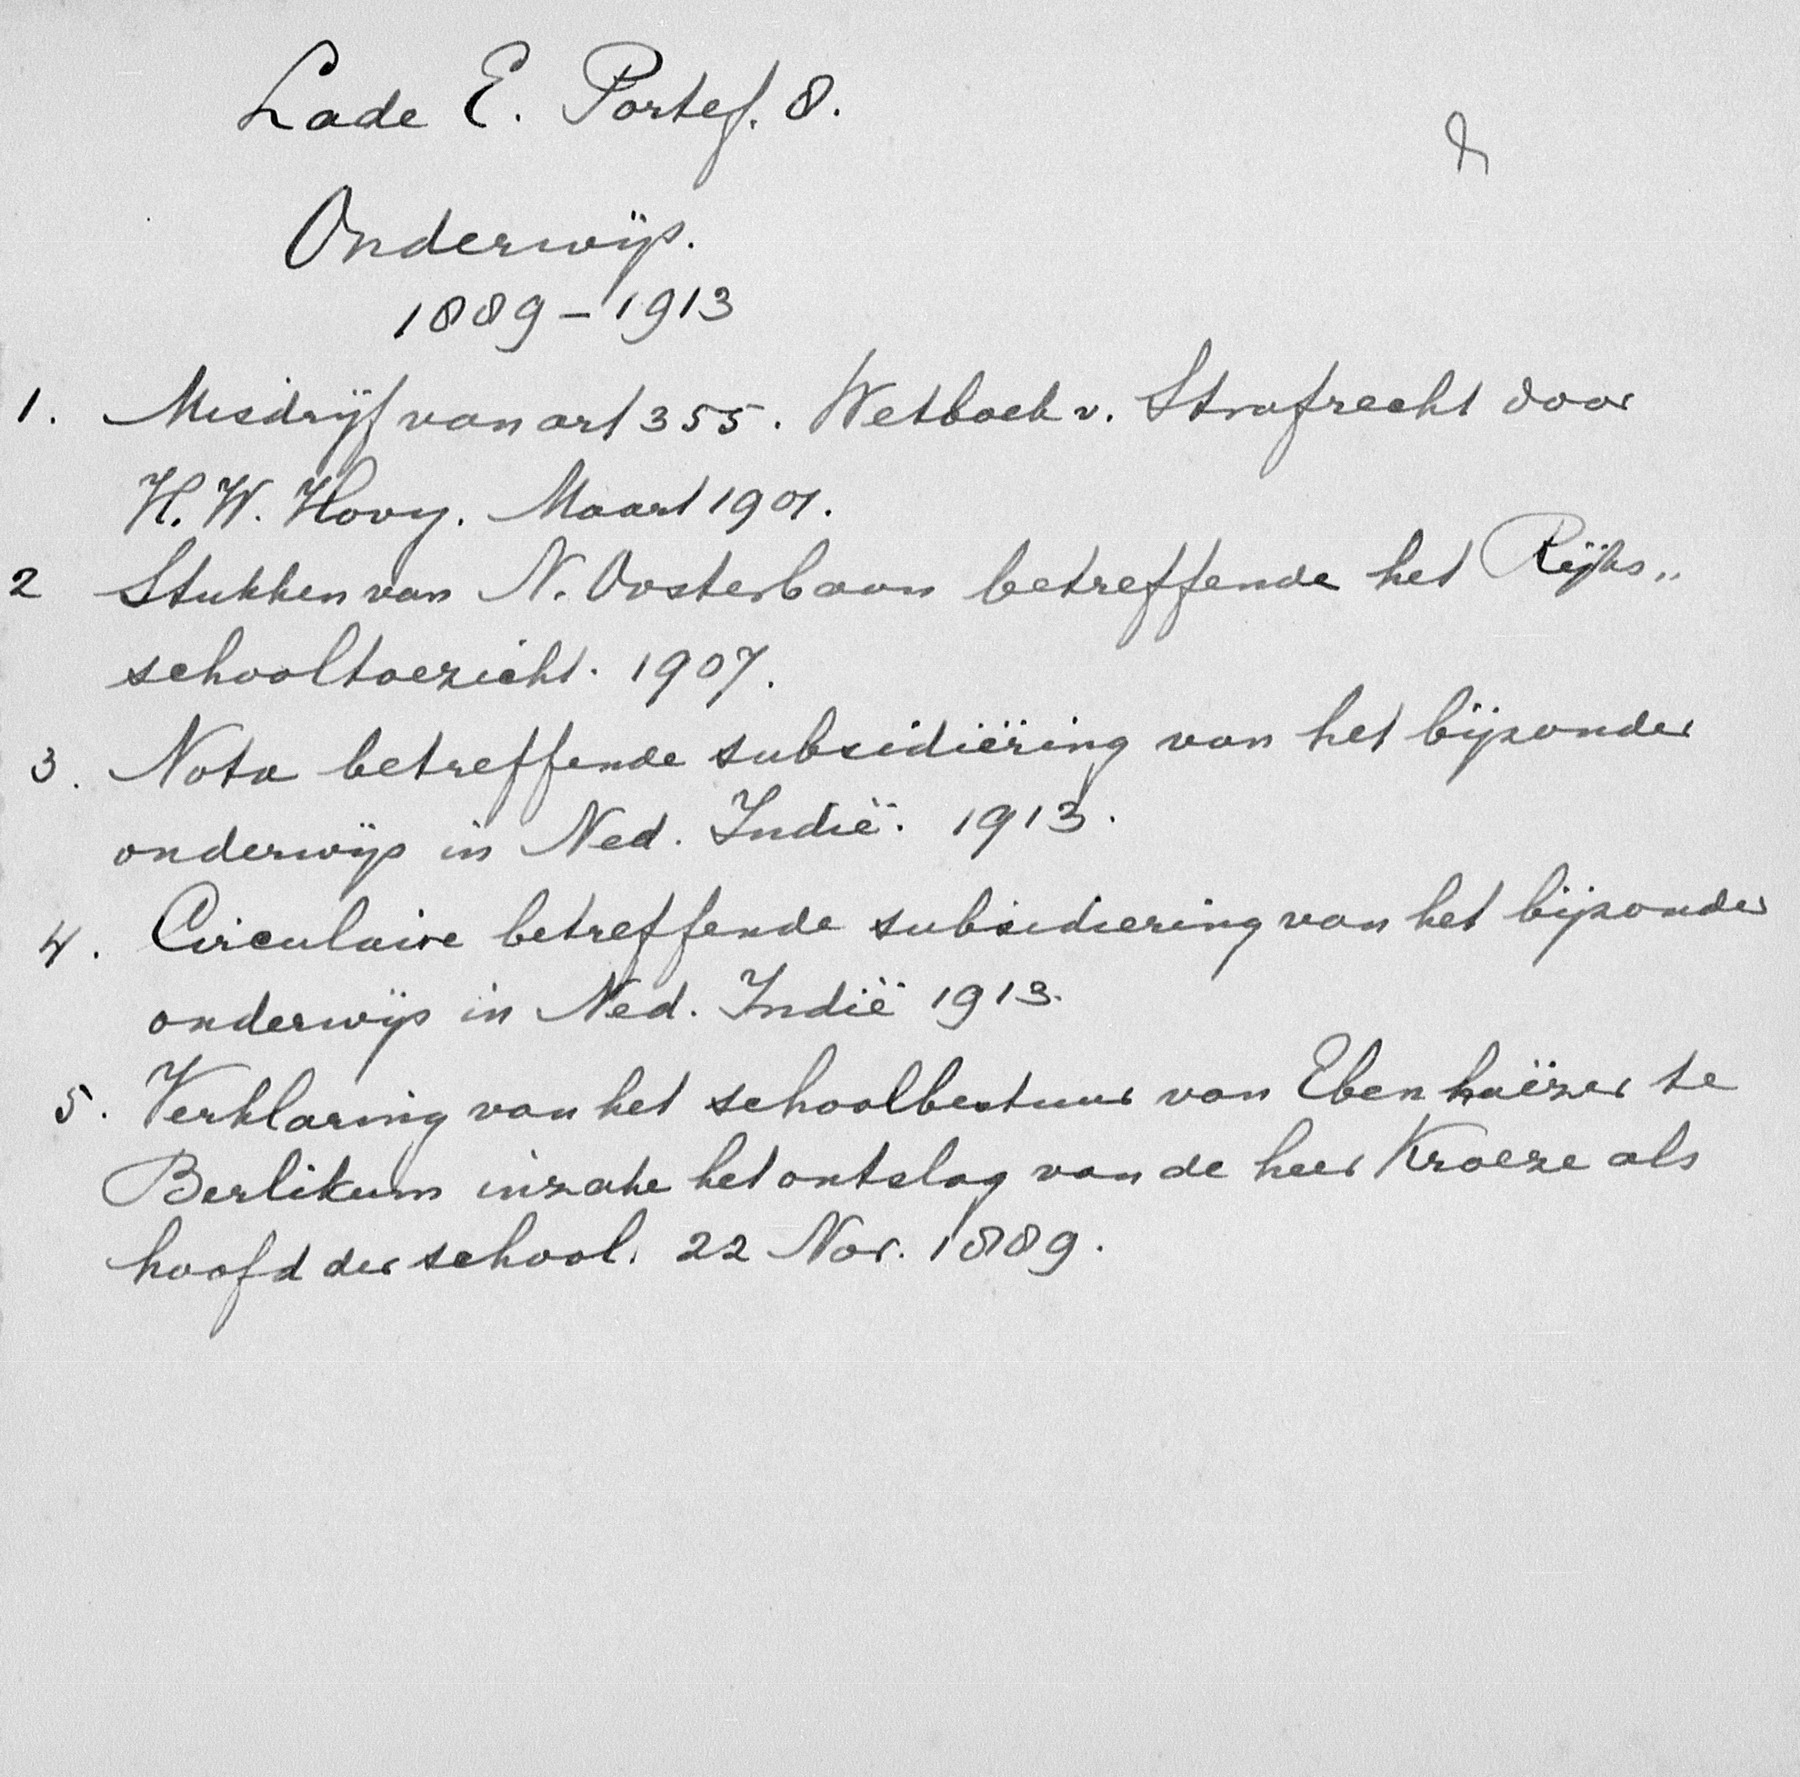 Lade E. Portef. 8.
Onderwijs.
1889 – 1913
1. Misdrijf van art 355. Wetboek v. Strafrecht door
H. W. Hovy. Maart 1901.
2 Stukken van N. Oosterbaan betreffende het Rijks„
schooltoezicht. 1907.
3. Nota betreffende subsidiëring van het bijzonder
onderwijs in Ned. Indië. 1913.
4. Circulaire betreffende subsidiering van het bijzonder
onderwijs in Ned. Indië 1913.
5. Verklaring van het schoolbestuur van Eben haëzer te
Berlikum inzake het ontslag van de heer Kroeze als
hoofd der school. 22 Nov. 1889.